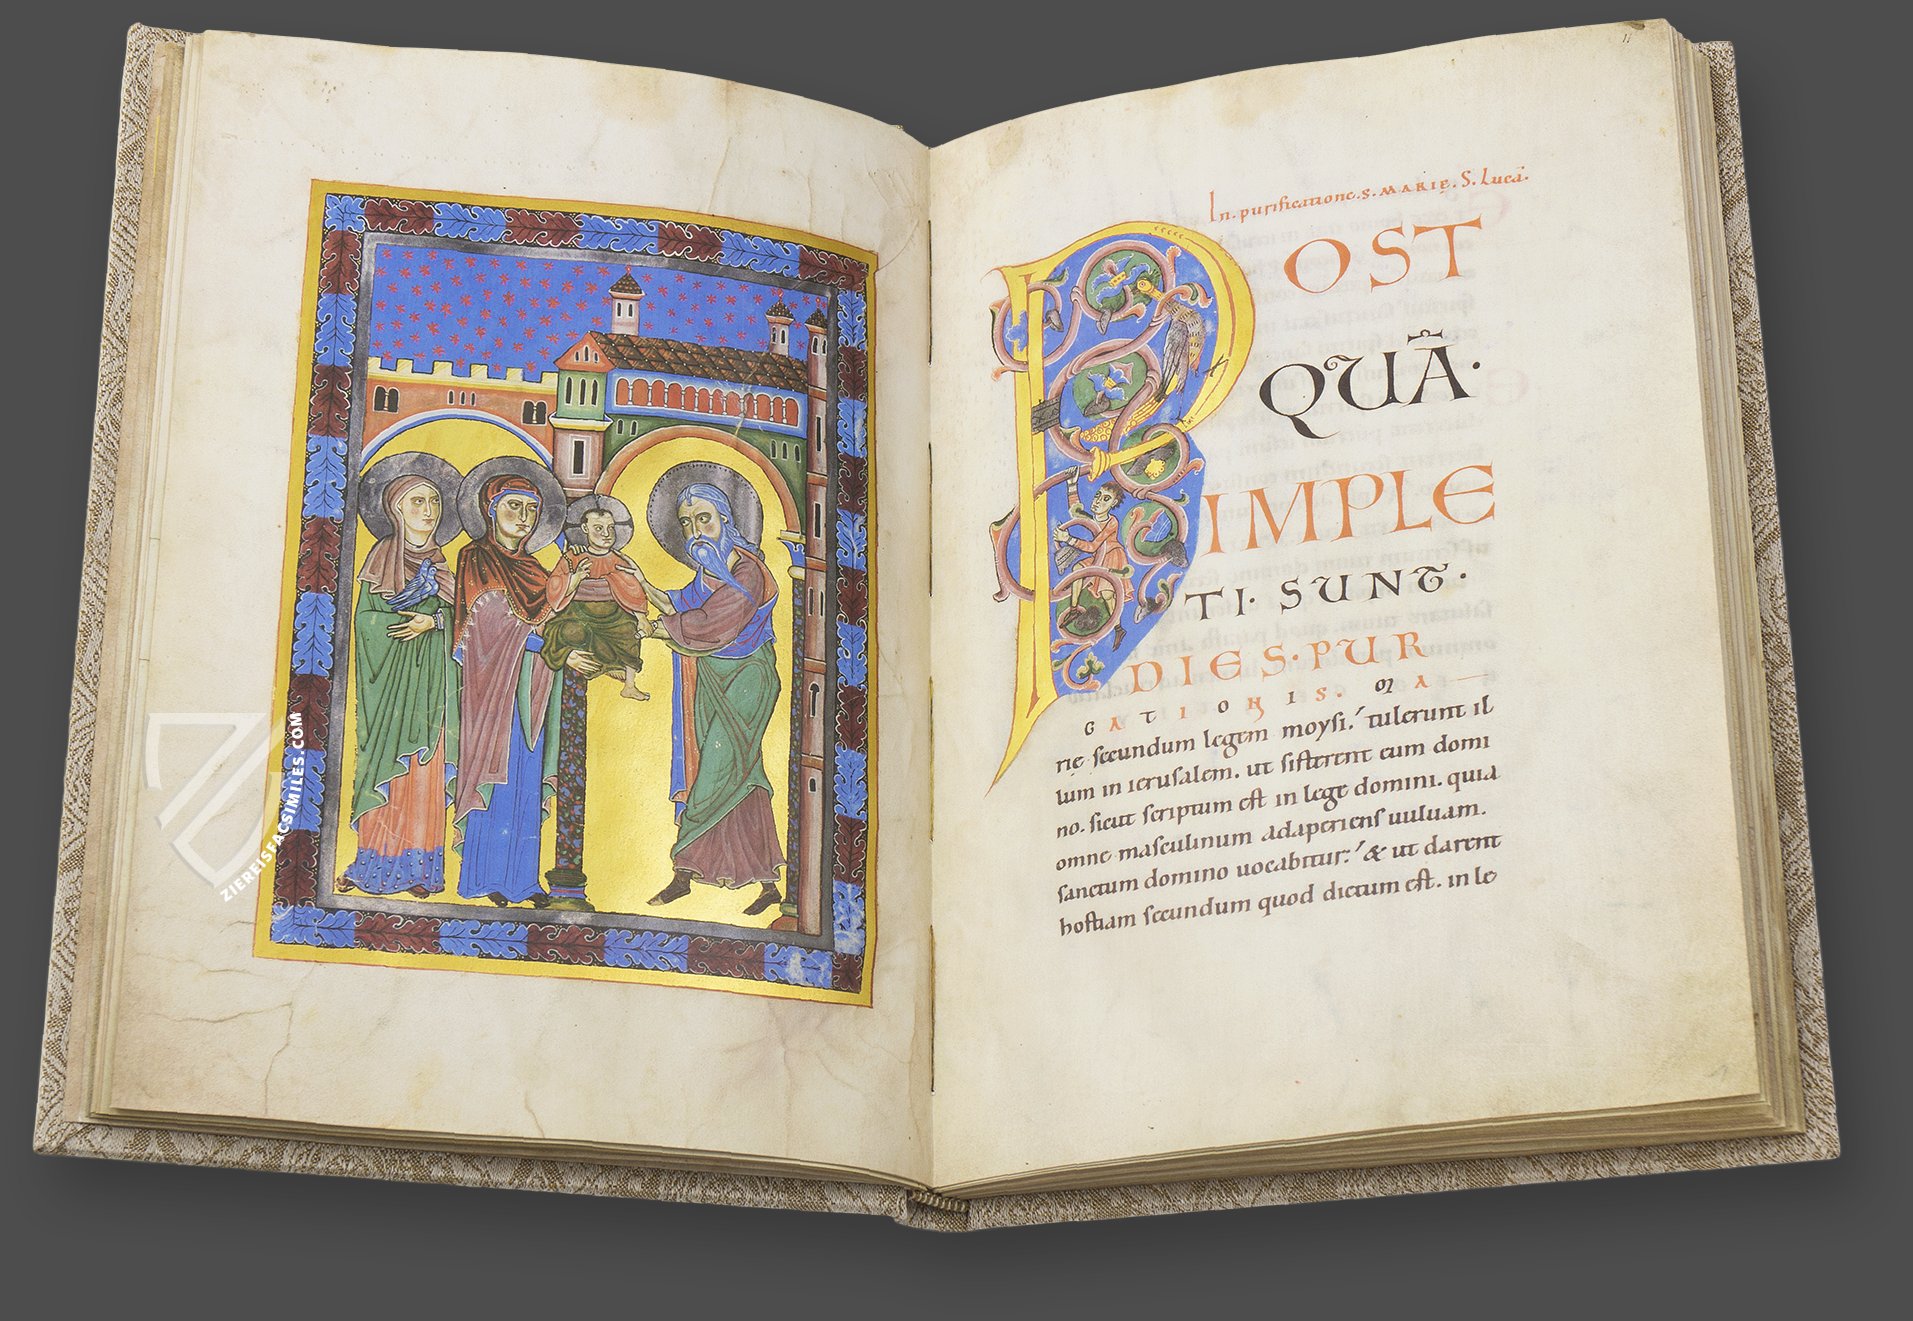 ZIEREISFACSIMILES.COM
In. purificatione. s. MARIĘ. S. Lucā.
POST
QUĀ.
IMPLE
TI. SUNT.
DIES. PUR
GATIONIS. MA
rię secundum legem moysi. tulerunt il
lum in ierusalem. ut sisterent eum domi
no. sicut scriptum est in lege domini. quia
omne masculinum adaperiens uuluam.
sanctum domino uocabitur. & ut darent
hostiam secundum quod dictum est. in le